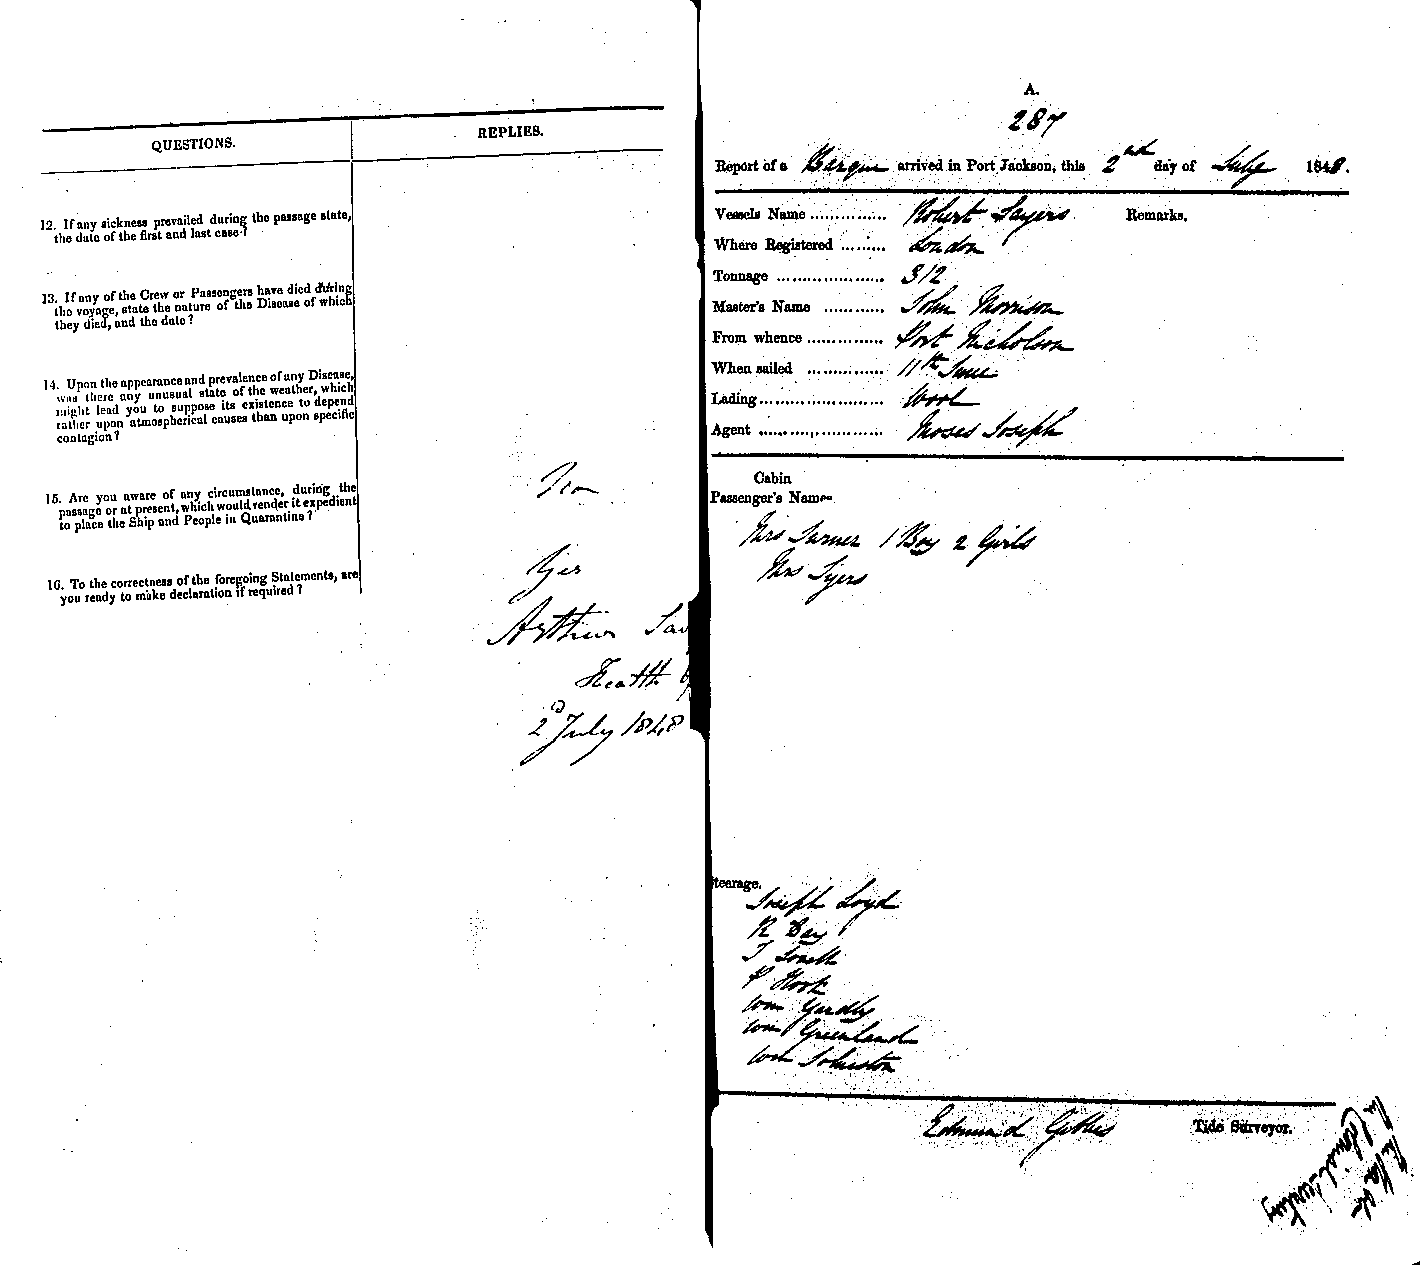 QUESTIONS.
REPLIES.
12. If any sickness prevailed during the passage state,
the date of the first and last case?
13. If any of the Crew or Passengers have died during
the voyage, state the nature of the Disease of which
they died, and the date?
14. Upon the appearance and prevalence of any Disease,
was there any unusual state of the weather, which
might lead you to suppose its existence to depend
rather upon atmospherical causes than upon specific
contagion?
15. Are you aware of any circumstance, during the
passage or at present, which would render it expedient
to place the Ship and People in Quarantine?
16. To the correctness of the foregoing Statements, are
you ready to make declaration if required?
Yes
Arthur Sav
Health
2d July 1848
A.
287
Report of a Barque arrived in Port Jackson, this 2nd day of July 1848.
Vessels Name ............... Robert Sayers
Remarks.
Where Registered ......... London
Tonnage ..................... 312
Master's Name ............ John Morrison
From whence ............... Port Nicholson
When sailed ............... 11th June
Lading........................ Wool
Agent ........................ Moses Joseph
Cabin
Passenger's Name
Mrs Turner 1 Boy 2 Girls
Mrs Tyers
teerage.
Joseph Loyd
R Day
P Hook
Wm Yardly
Wm Greenland
Wm Johnston
Edmund
Tide Surveyor.